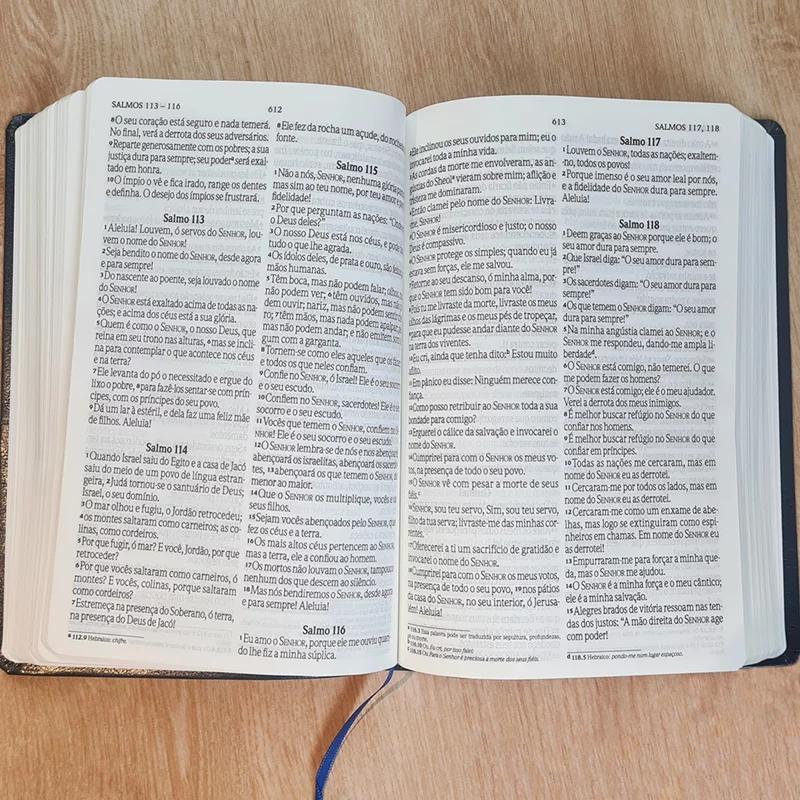 SALMOS 113 – 116
612
8 O seu coração está seguro e nada temerá.
No final, verá a derrota dos seus adversários.
9 Reparte generosamente com os pobres; a sua
justiça dura para sempre; seu poderᵃ será exal-
tado em honra.
10 O ímpio o vê e fica irado, range os dentes
e definha. O desejo dos ímpios se frustrará.
Salmo 113
1 Aleluia! Louvem, ó servos do SENHOR, lou-
vem o nome do SENHOR!
2 Seja bendito o nome do SENHOR, desde agora
e para sempre!
3 Do nascente ao poente, seja louvado o nome
do SENHOR!
4 O SENHOR está exaltado acima de todas as na-
ções; e acima dos céus está a sua glória.
5 Quem é como o SENHOR, o nosso Deus, que
reina em seu trono nas alturas, 6 mas se incli-
na para contemplar o que acontece nos céus
e na terra?
7 Ele levanta do pó o necessitado e ergue do
lixo o pobre, 8 para fazê-los sentar-se com prín-
cipes, com os príncipes do seu povo.
9 Dá um lar à estéril, e dela faz uma feliz mãe
de filhos. Aleluia!
Salmo 114
1 Quando Israel saiu do Egito e a casa de Jacó
saiu do meio de um povo de língua estran-
geira, 2 Judá tornou-se o santuário de Deus;
Israel, o seu domínio.
3 O mar olhou e fugiu, o Jordão retrocedeu;
4 os montes saltaram como carneiros; as co-
linas, como cordeiros.
5 Por que fugir, ó mar? E você, Jordão, por que
retroceder?
6 Por que vocês saltaram como carneiros, ó
montes? E vocês, colinas, porque saltaram
como cordeiros?
7 Estremeça na presença do Soberano, ó terra,
na presença do Deus de Jacó!
a 112.9 Hebraico: chifre.
8 Ele fez da rocha um açude, do rochedo
fonte.
Salmo 115
1 Não a nós, SENHOR, nenhuma glória para
mas sim ao teu nome, por teu amor e por
fidelidade!
2 Por que perguntam as nações:
o Deus deles?"
3 O nosso Deus está nos céus, e pode
tudo o que lhe agrada.
4 Os ídolos deles, de prata e ouro, são feitos
mãos humanas.
5 Têm boca, mas não podem falar; olhos,
não podem ver; 6 têm ouvidos, mas não
dem ouvir; nariz, mas não podem sentir
ro; 7 têm mãos, mas nada podem apalpar;
mas não podem andar; e não emitem som
gum com a garganta.
8 Tornem-se como eles aqueles que os fazem
e todos os que neles confiam.
9 Confie no SENHOR, ó Israel! Ele é o seu socorro
e o seu escudo.
10 Confiem no SENHOR, sacerdotes! Ele é o seu
socorro e o seu escudo.
11 Vocês que temem o SENHOR, confiem no
NHOR! Ele é o seu socorro e o seu escudo.
12 O SENHOR lembra-se de nós e nos abençoará
abençoará os israelitas, abençoará os sacerdo-
tes, 13 abençoará os que temem o SENHOR, do
menor ao maior.
14 Que o SENHOR os multiplique, vocês e os
seus filhos.
15 Sejam vocês abençoados pelo SENHOR, que
fez os céus e a terra.
16 Os mais altos céus pertencem ao SENHOR,
mas a terra, ele a confiou ao homem.
17 Os mortos não louvam o SENHOR, tampouco
nenhum dos que descem ao silêncio.
18 Mas nós bendiremos o SENHOR, desde agora
e para sempre! Aleluia!
Salmo 116
1 Eu amo o SENHOR, porque ele me ouviu quan-
do lhe fiz a minha súplica.
613
SALMOS 117, 118
2 Ele inclinou os seus ouvidos para mim; eu o
invocarei toda a minha vida.
3 As cordas da morte me envolveram, as an-
gústias do Sheolᵃ vieram sobre mim; aflição e
tristeza me dominaram.
4 Então clamei pelo nome do SENHOR: Livra-
me, SENHOR!
5 O SENHOR é misericordioso e justo; o nosso
Deus é compassivo.
6 O SENHOR protege os simples; quando eu já
estava sem forças, ele me salvou.
7 Retorne ao seu descanso, ó minha alma, por-
que o SENHOR tem sido bom para você!
8 Pois tu me livraste da morte, livraste os meus
olhos das lágrimas e os meus pés de tropeçar,
9 para que eu pudesse andar diante do SENHOR
na terra dos viventes.
10 Eu cri, ainda que tenha dito:ᵇ Estou muito
aflito.
11 Em pânico eu disse: Ninguém merece con-
fiança.
12 Como posso retribuir ao SENHOR toda a sua
bondade para comigo?
13 Erguerei o cálice da salvação e invocarei o
nome do SENHOR.
14 Cumprirei para com o SENHOR os meus vo-
tos, na presença de todo o seu povo.
15 O SENHOR vê com pesar a morte de seus
fiéis.ᶜ
16 SENHOR, sou teu servo, Sim, sou teu servo,
filho da tua serva; livraste-me das minhas cor-
rentes.
17 Oferecerei a ti um sacrifício de gratidão e
invocarei o nome do SENHOR.
18 Cumprirei para com o SENHOR os meus votos,
na presença de todo o seu povo, 19 nos pátios
da casa do SENHOR, no seu interior, ó Jerusa-
lém! Aleluia!
a 116.3 Essa palavra pode ser traduzida por sepultura, profundezas,
ou morte.
b 116.10 Ou Eu cri, por isso falei:
c 116.15 Ou Para o SENHOR é preciosa a morte dos seus fiéis.
Salmo 117
1 Louvem o SENHOR, todas as nações; exaltem-
no, todos os povos!
2 Porque imenso é o seu amor leal por nós,
e a fidelidade do SENHOR dura para sempre.
Aleluia!
Salmo 118
1 Deem graças ao SENHOR porque ele é bom; o
seu amor dura para sempre.
2 Que Israel diga: "O seu amor dura para sem-
pre!"
3 Os sacerdotes digam: "O seu amor dura para
sempre!"
4 Os que temem o SENHOR digam: "O seu amor
dura para sempre!"
5 Na minha angústia clamei ao SENHOR; e o
SENHOR me respondeu, dando-me ampla li-
berdadeᵈ.
6 O SENHOR está comigo, não temerei. O que
me podem fazer os homens?
7 O SENHOR está comigo; ele é o meu ajudador.
Verei a derrota dos meus inimigos.
8 É melhor buscar refúgio no SENHOR do que
confiar nos homens.
9 É melhor buscar refúgio no SENHOR do que
confiar em príncipes.
10 Todas as nações me cercaram, mas em
nome do SENHOR eu as derrotei.
11 Cercaram-me por todos os lados, mas em
nome do SENHOR eu as derrotei.
12 Cercaram-me como um enxame de abe-
lhas, mas logo se extinguiram como espi-
nheiros em chamas. Em nome do SENHOR eu
as derrotei!
13 Empurraram-me para forçar a minha que-
da, mas o SENHOR me ajudou.
14 O SENHOR é a minha força e o meu cântico;
ele é a minha salvação.
15 Alegres brados de vitória ressoam nas ten-
das dos justos: "A mão direita do SENHOR age
com poder!
d 118.5 Hebraico: pondo-me num lugar espaçoso.